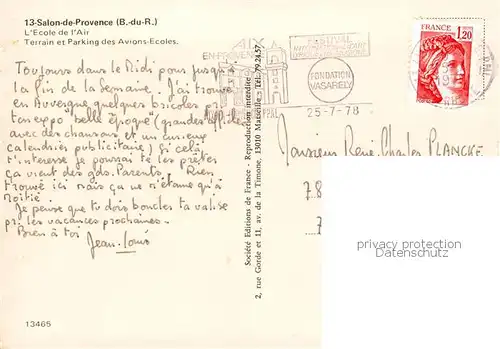 13-Salon-de-Provence (B.-du-R.)
L'Ecole de l'Air
Terrain et Parking des Avions-Ecoles.
Toujours dans le Midi pour jusqu'à
la fin de la semaine. J'ai trouvé
en Auvergne quelques bricoles pr
ton expo "belle époque" (grandes affiches
avec des chansons et un curieux
calendrier publicitaire) Si cela
t'intéresse je pourrai te les prêter
ça vient des gds. Parents. Rien
trouvé ici mais ça ne t'étonne qu'à
moitié
Je pense que tu dois boucler ta valise
pr les vacances prochaines.
Bien à toi
Jean-Louis
13465
Société Editions de France - Reproduction interdite
2, rue Gorde et 11, av. de la Timone, 13010 Marseille - Tél. 79.24.57
AIX
EN PROVENCE
FESTIVAL
FONDATION
VASARELY
25-7-78
FRANCE
1,20
Monsieur René-Charles PLANCKE
78
7
privacy protection
AnsichtskartenVersand.com